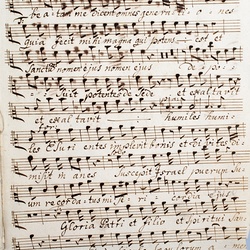 be a tam me dicent omnes genera ti o nes
quia fecit mihi magna qui potens est et
Sanctu nomen ejus nomen ejus de po
Suit potentes de Sede et exaltavit
et exal tavit humiles humi
les Esuri entes implevit bonis et divites di
misit in anes Suscepit Israel puerum Su
um recorda tus mi se ri cordia
Gloria Patri et filio et Spiritui San